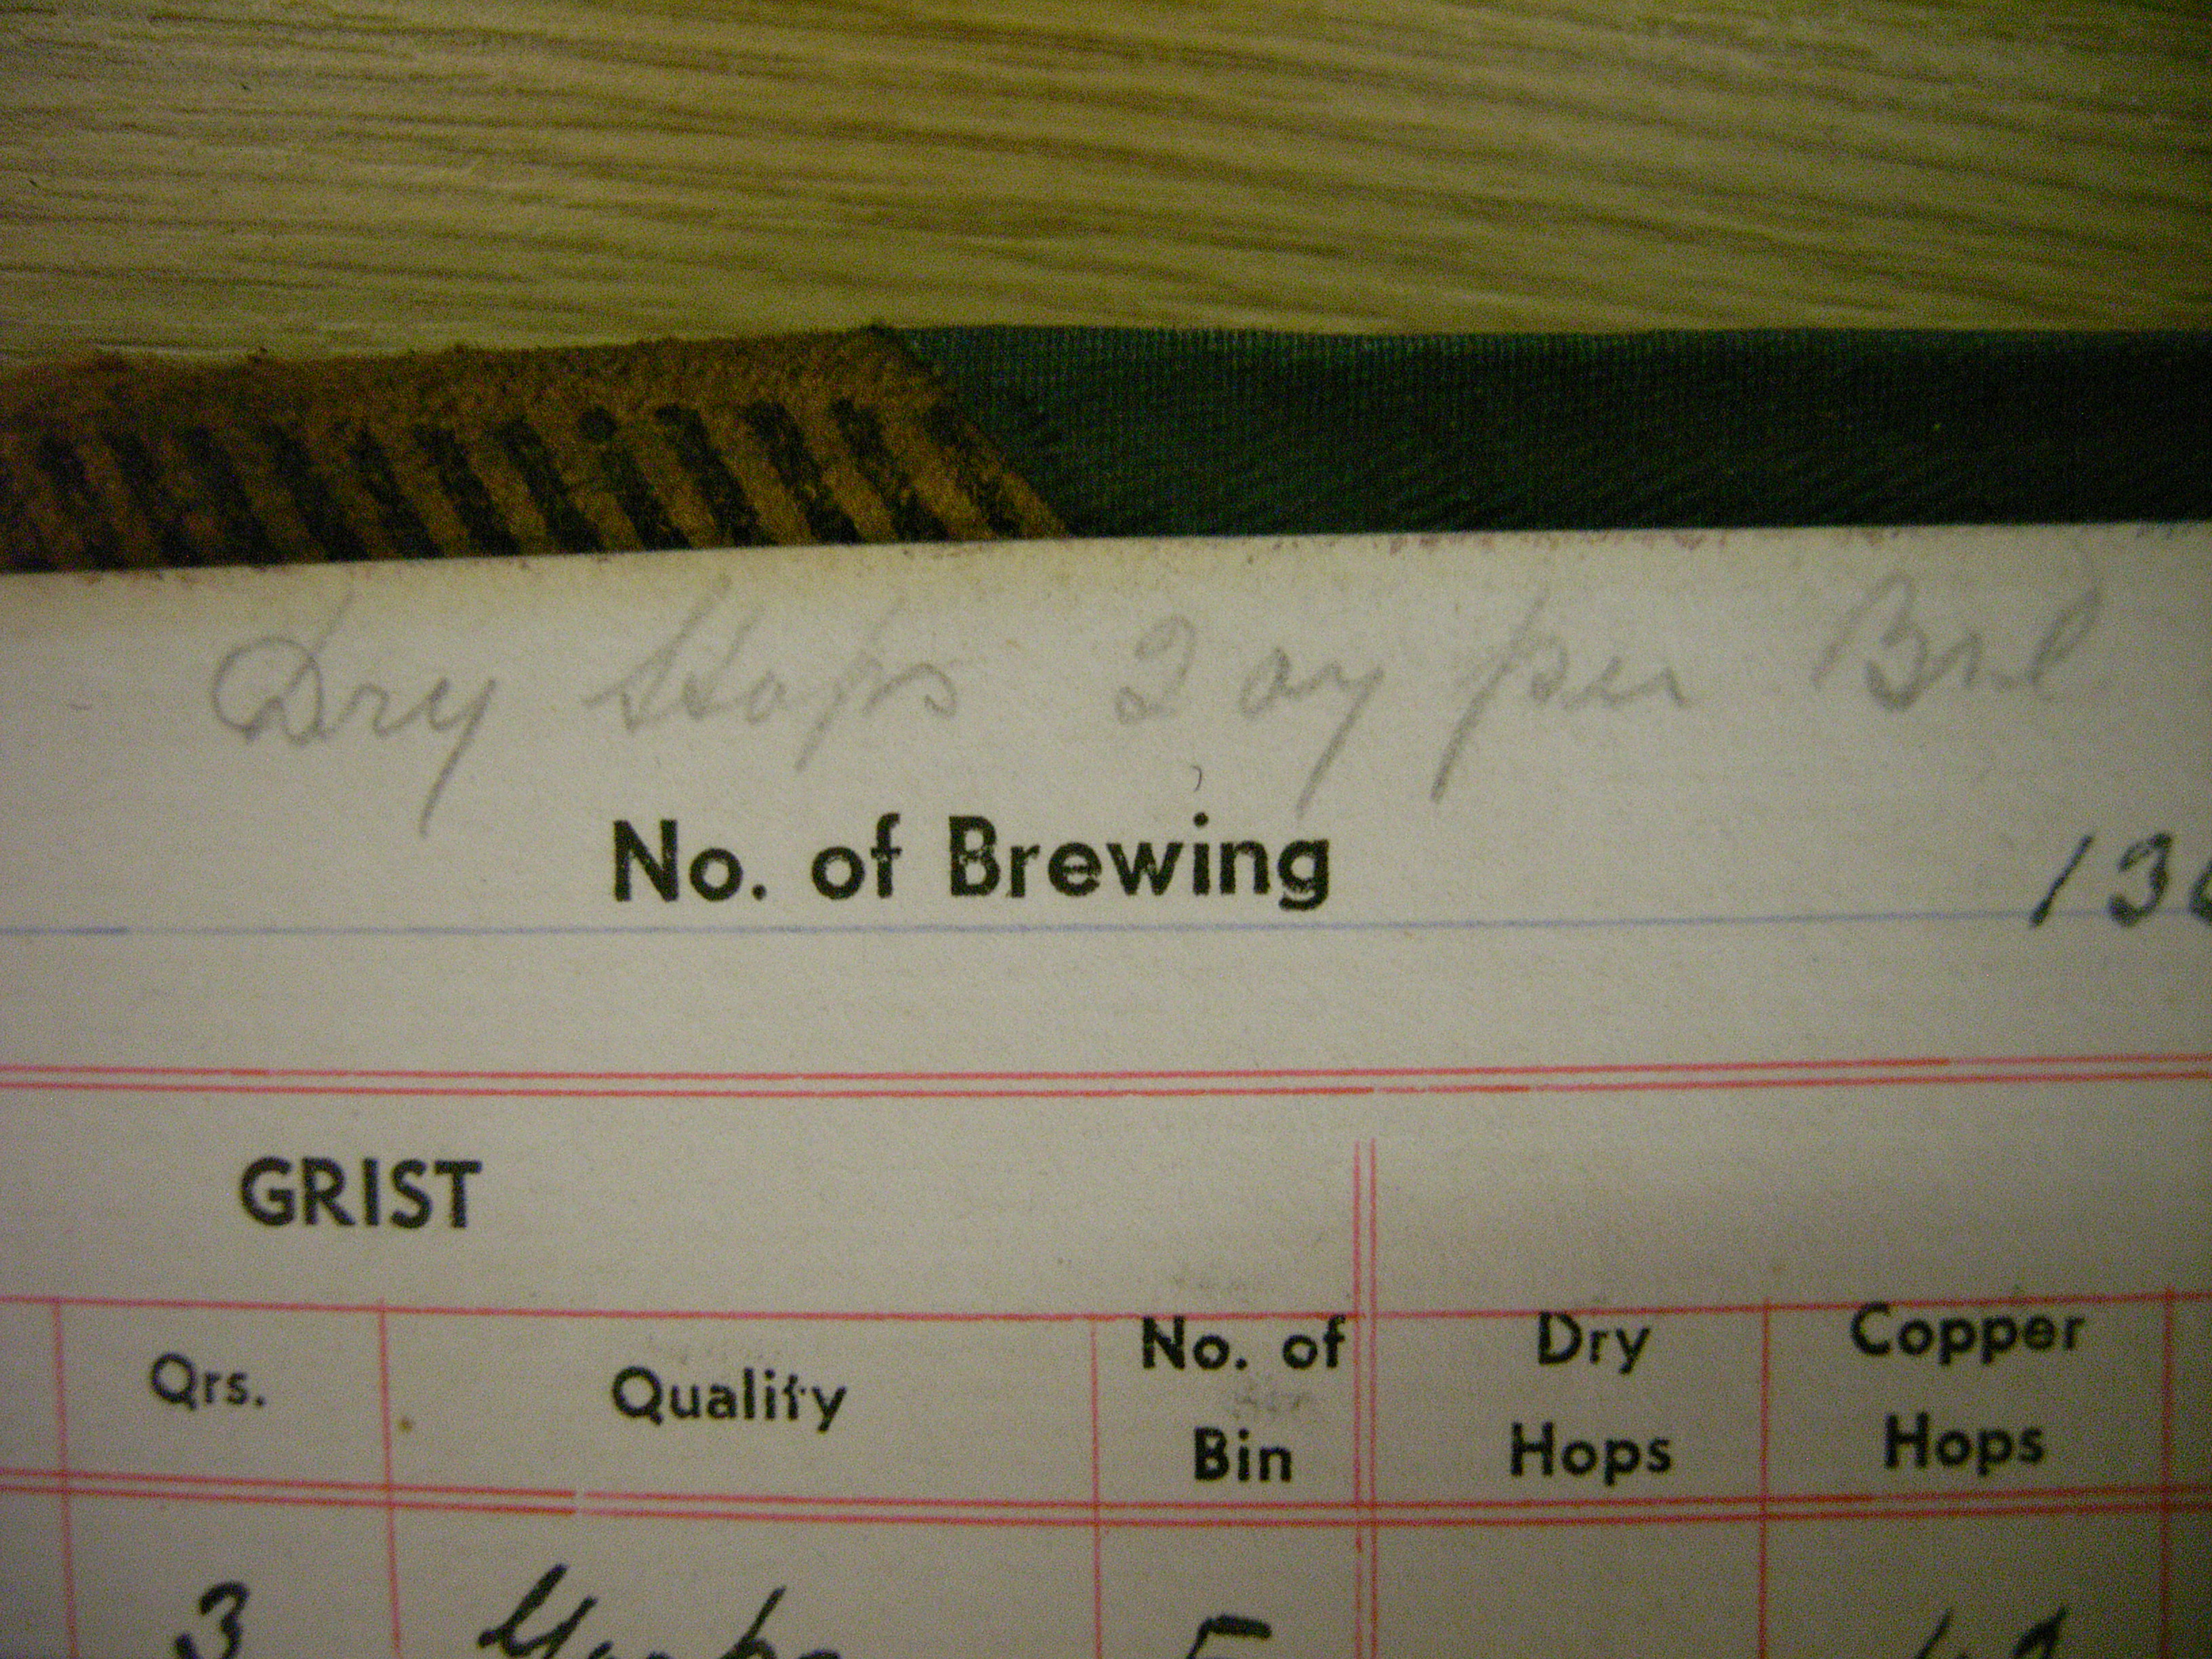 Dry Hops 2 oz per Brl
No. of Brewing
GRIST
Qrs. Quality No. of Bin Dry Hops Copper Hops
3 5